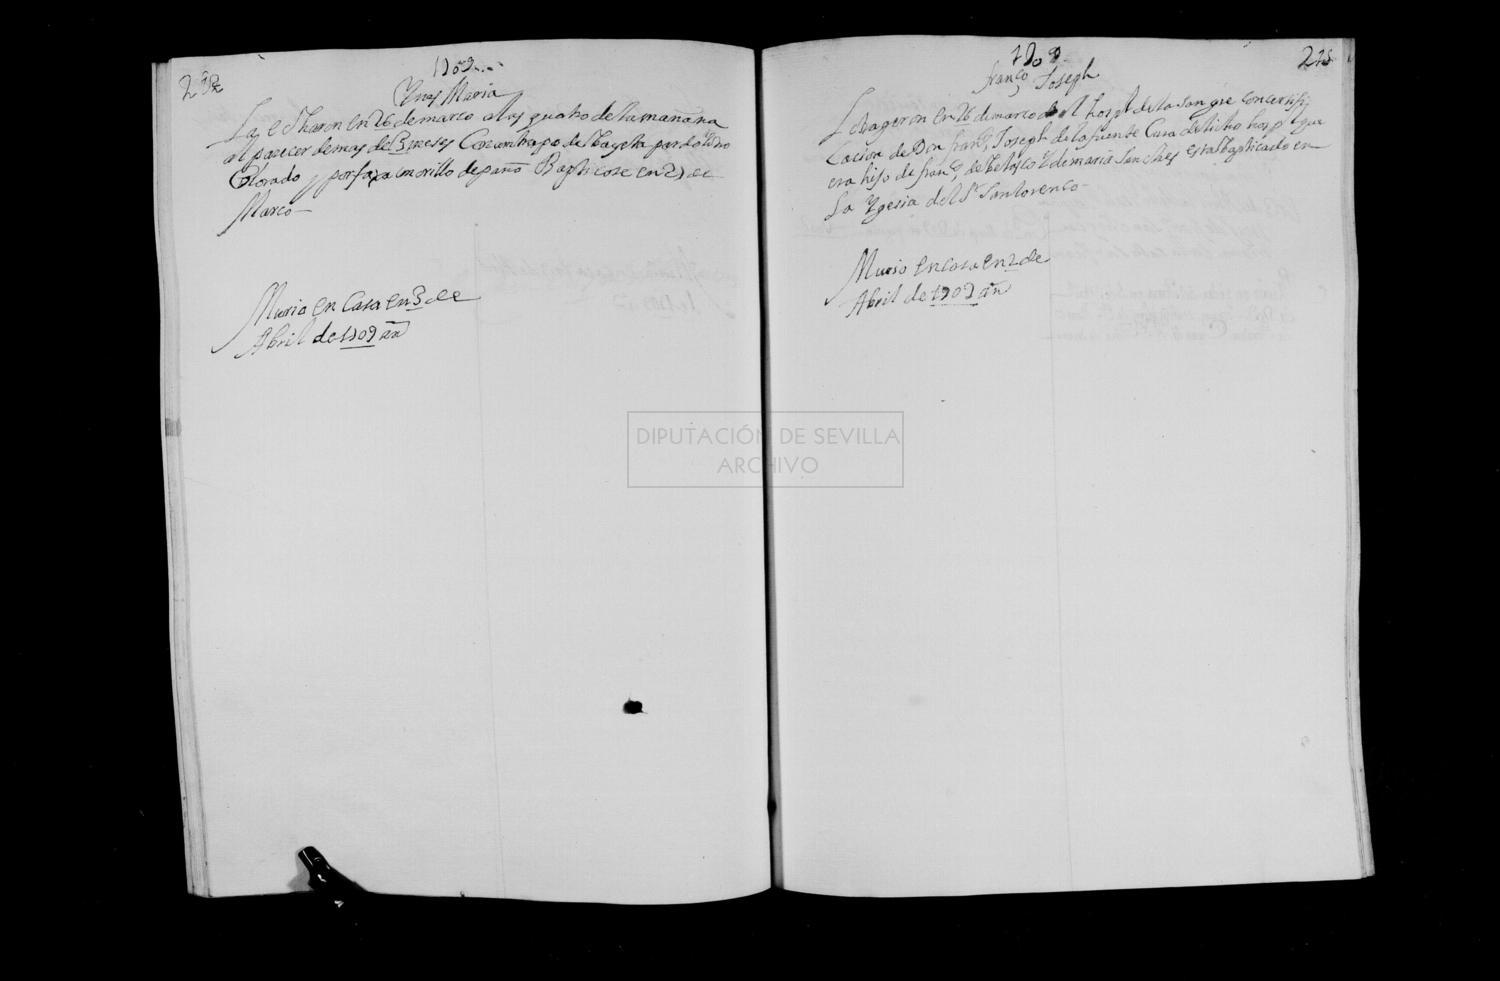 1709
Ynes Maria
La echaron en 26 de marco a las quatro de la mañana
al parecer de mas de 3 meses Con un trapo de bayeta pardo otro
Colorado y por faxa un orillo de paño Bapticose en 27 de
Marco
Murio en Casa en 3 de
Abril de 1709 añ
1709
275
franco Joseph
Lo trageron en 26 de marco del hospl de la sangre con certifi
Cacion de Don franco Joseph de la fuente Cura de dicho hospl que
era hijo de franco de Velasco y de maria Sanches esta Bapticado en
La Yglesia del Sr San lorenco
Murio en Casa en 2 de
Abril de 1709 añ
DIPUTACIÓN DE SEVILLA
ARCHIVO